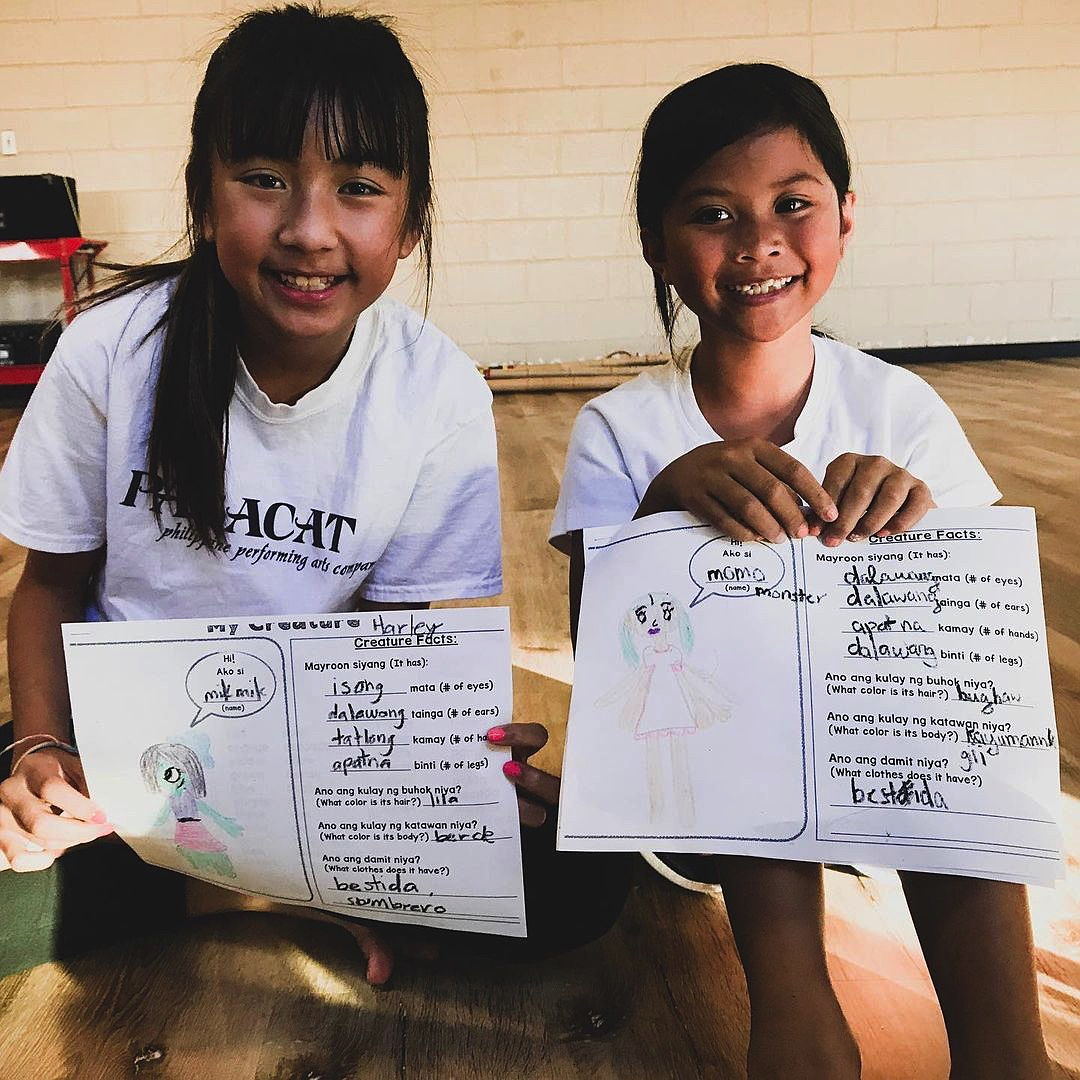 PAMACAT
philippine performing arts company
My Creature Harley
Hi!
Ako si
mikmik
(name)
Creature Facts:
Mayroon siyang (It has):
isang mata (# of eyes)
dalawang tainga (# of ears)
tatlong kamay (# of ha
apatna binti (# of legs)
Ano ang kulay ng buhok niya?
(What color is its hair?) lila
Ano ang kulay ng katawan niya?
(What color is its body?) berde
Ano ang damit niya?
(What clothes does it have?)
bestida,
sombrero
Hi!
Ako si
momo
(name) monster
Creature Facts:
Mayroon siyang (It has):
dalawang mata (# of eyes)
dalawang tainga (# of ears)
apat na kamay (# of hands)
dalawang binti (# of legs)
Ano ang kulay ng buhok niya?
(What color is its hair?) bughaw
Ano ang kulay ng katawan niya?
(What color is its body?) kayumann
ggi
Ano ang damit niya?
(What clothes does it have?)
bestida